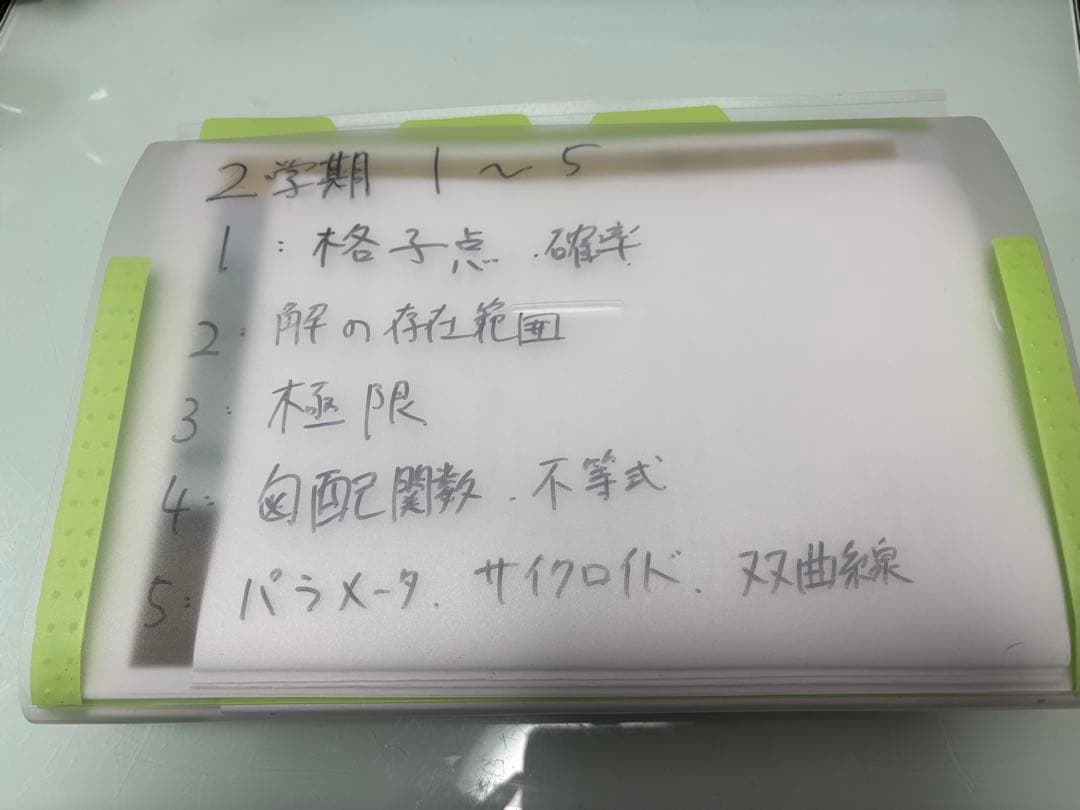 2学期 1〜5
1:格子点.確率
2:解の存在範囲
3:極限
4:勾配関数.不等式
5:パラメータ.サイクロイド.双曲線